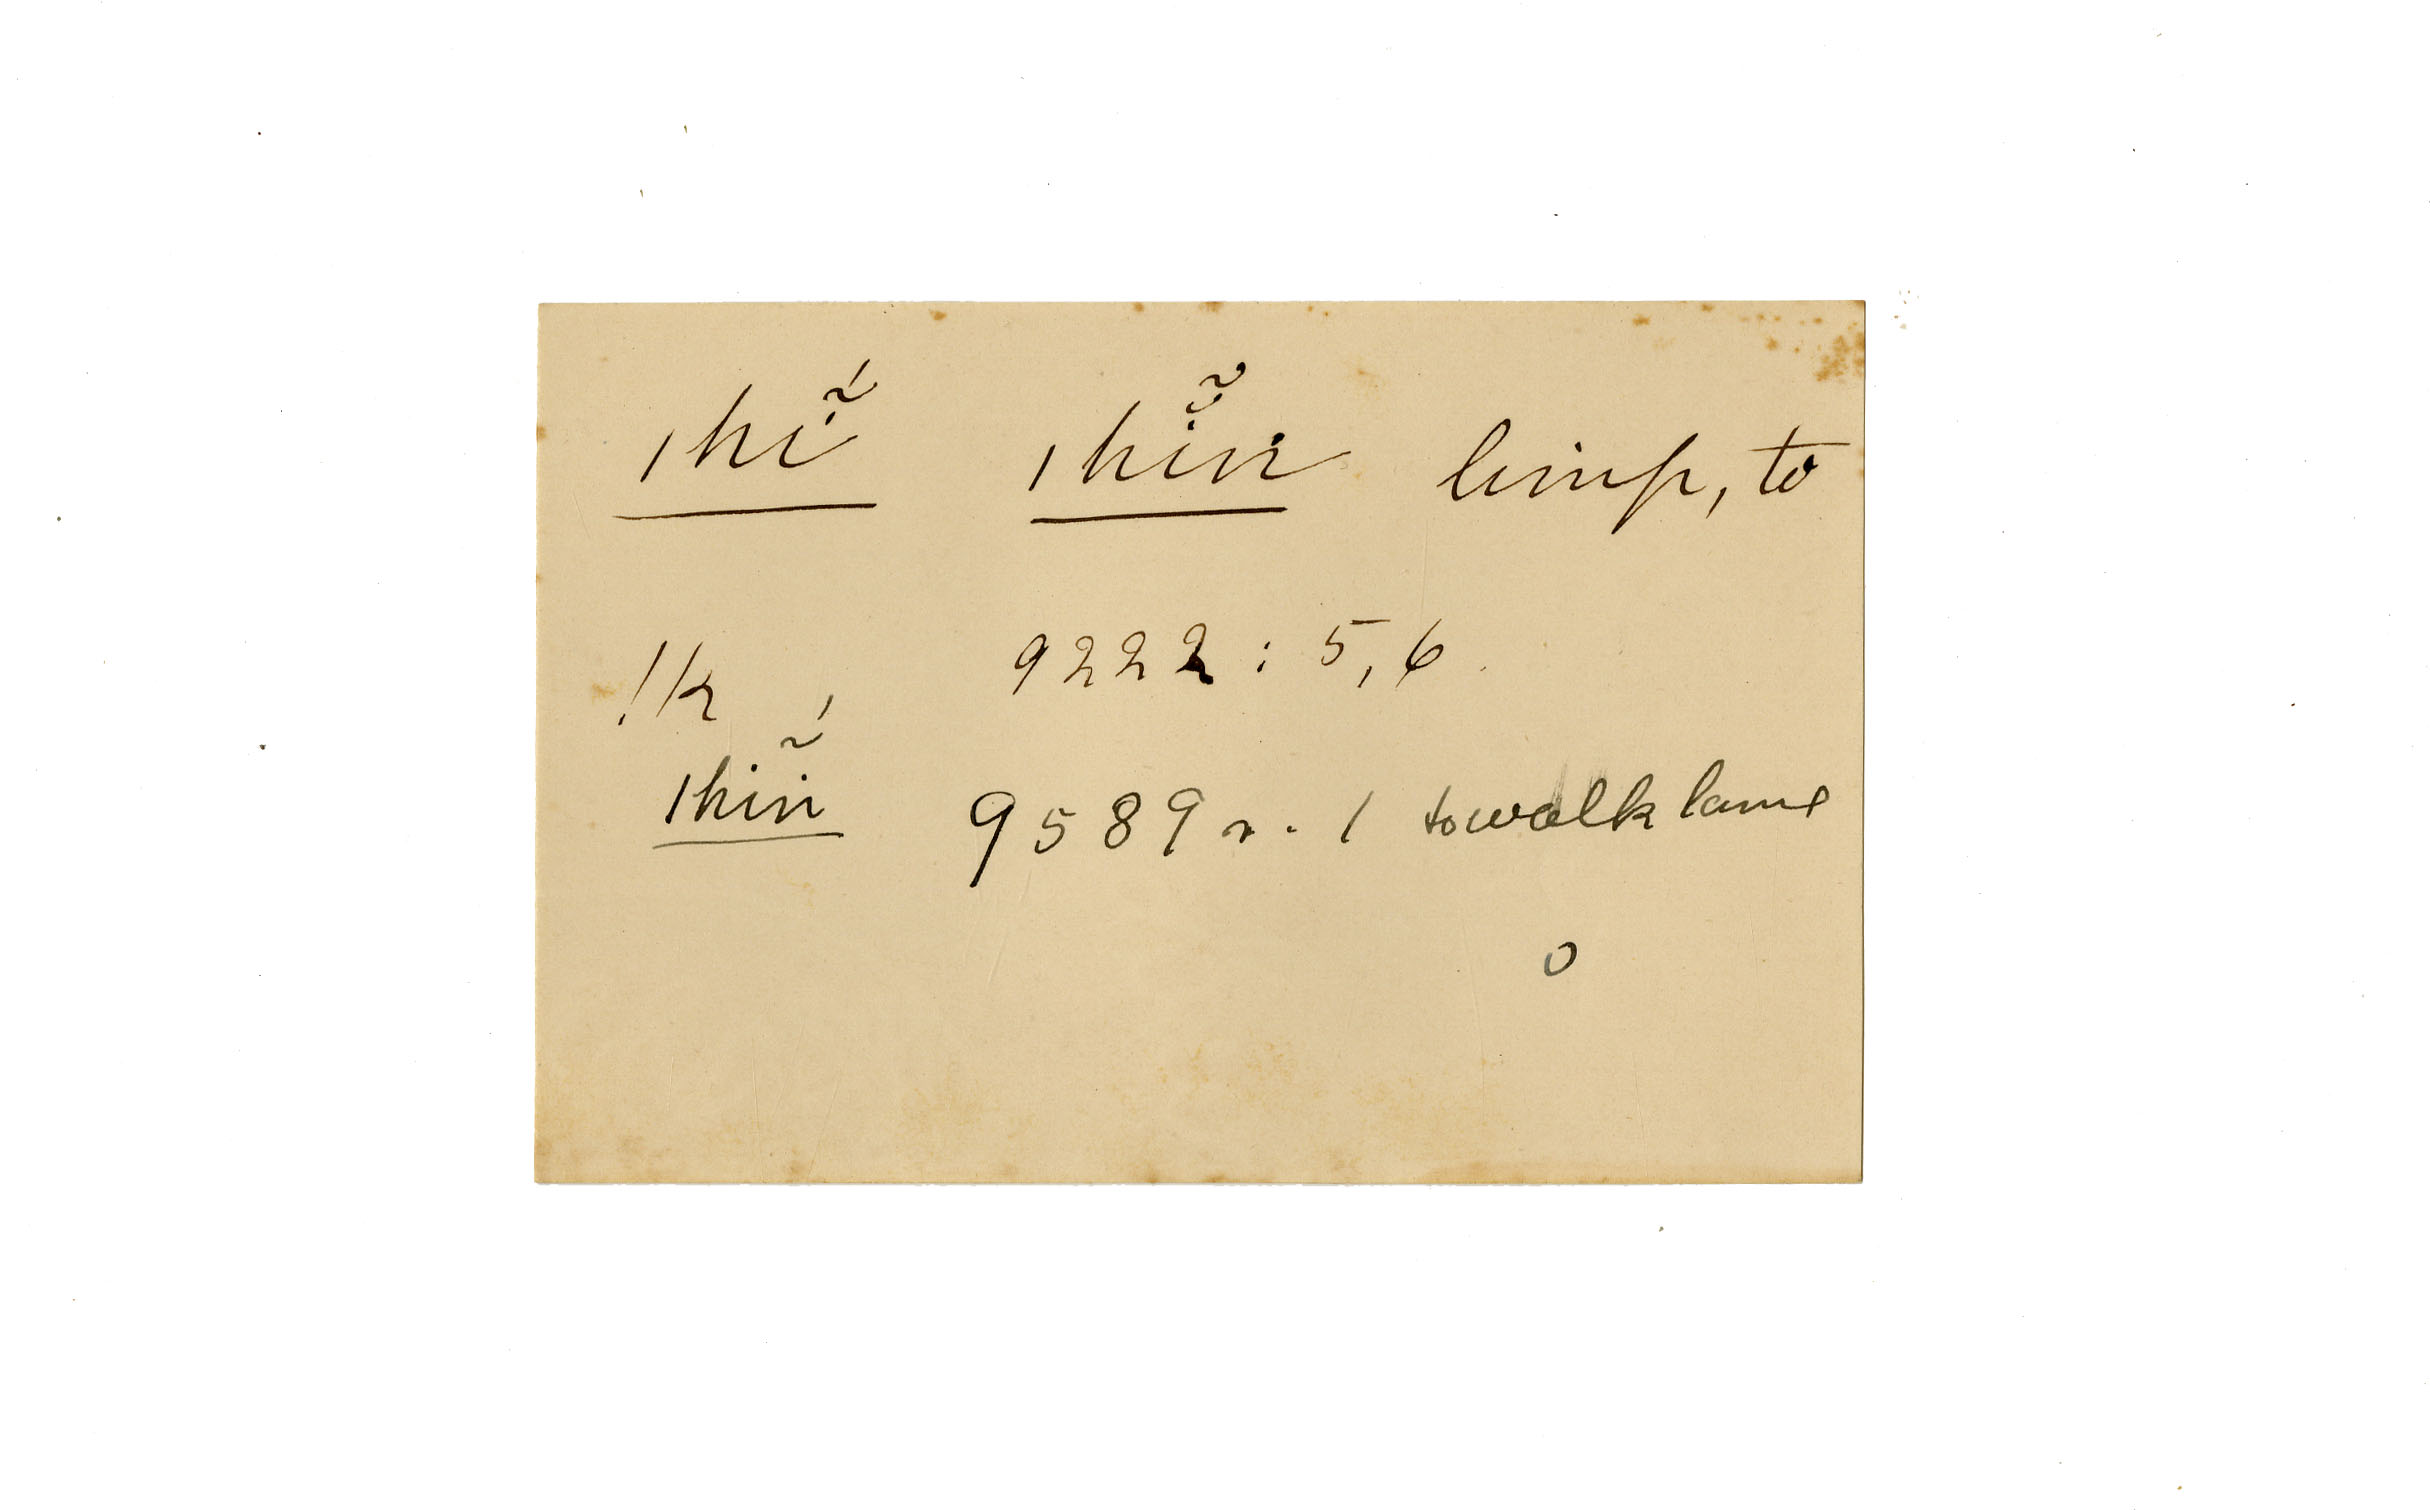 ǀhĩ́ ǀhĩ̆n limp, to
!k 9222 : 5, 6.
ǀhĩ́n 9589 r. 1 to walk lame